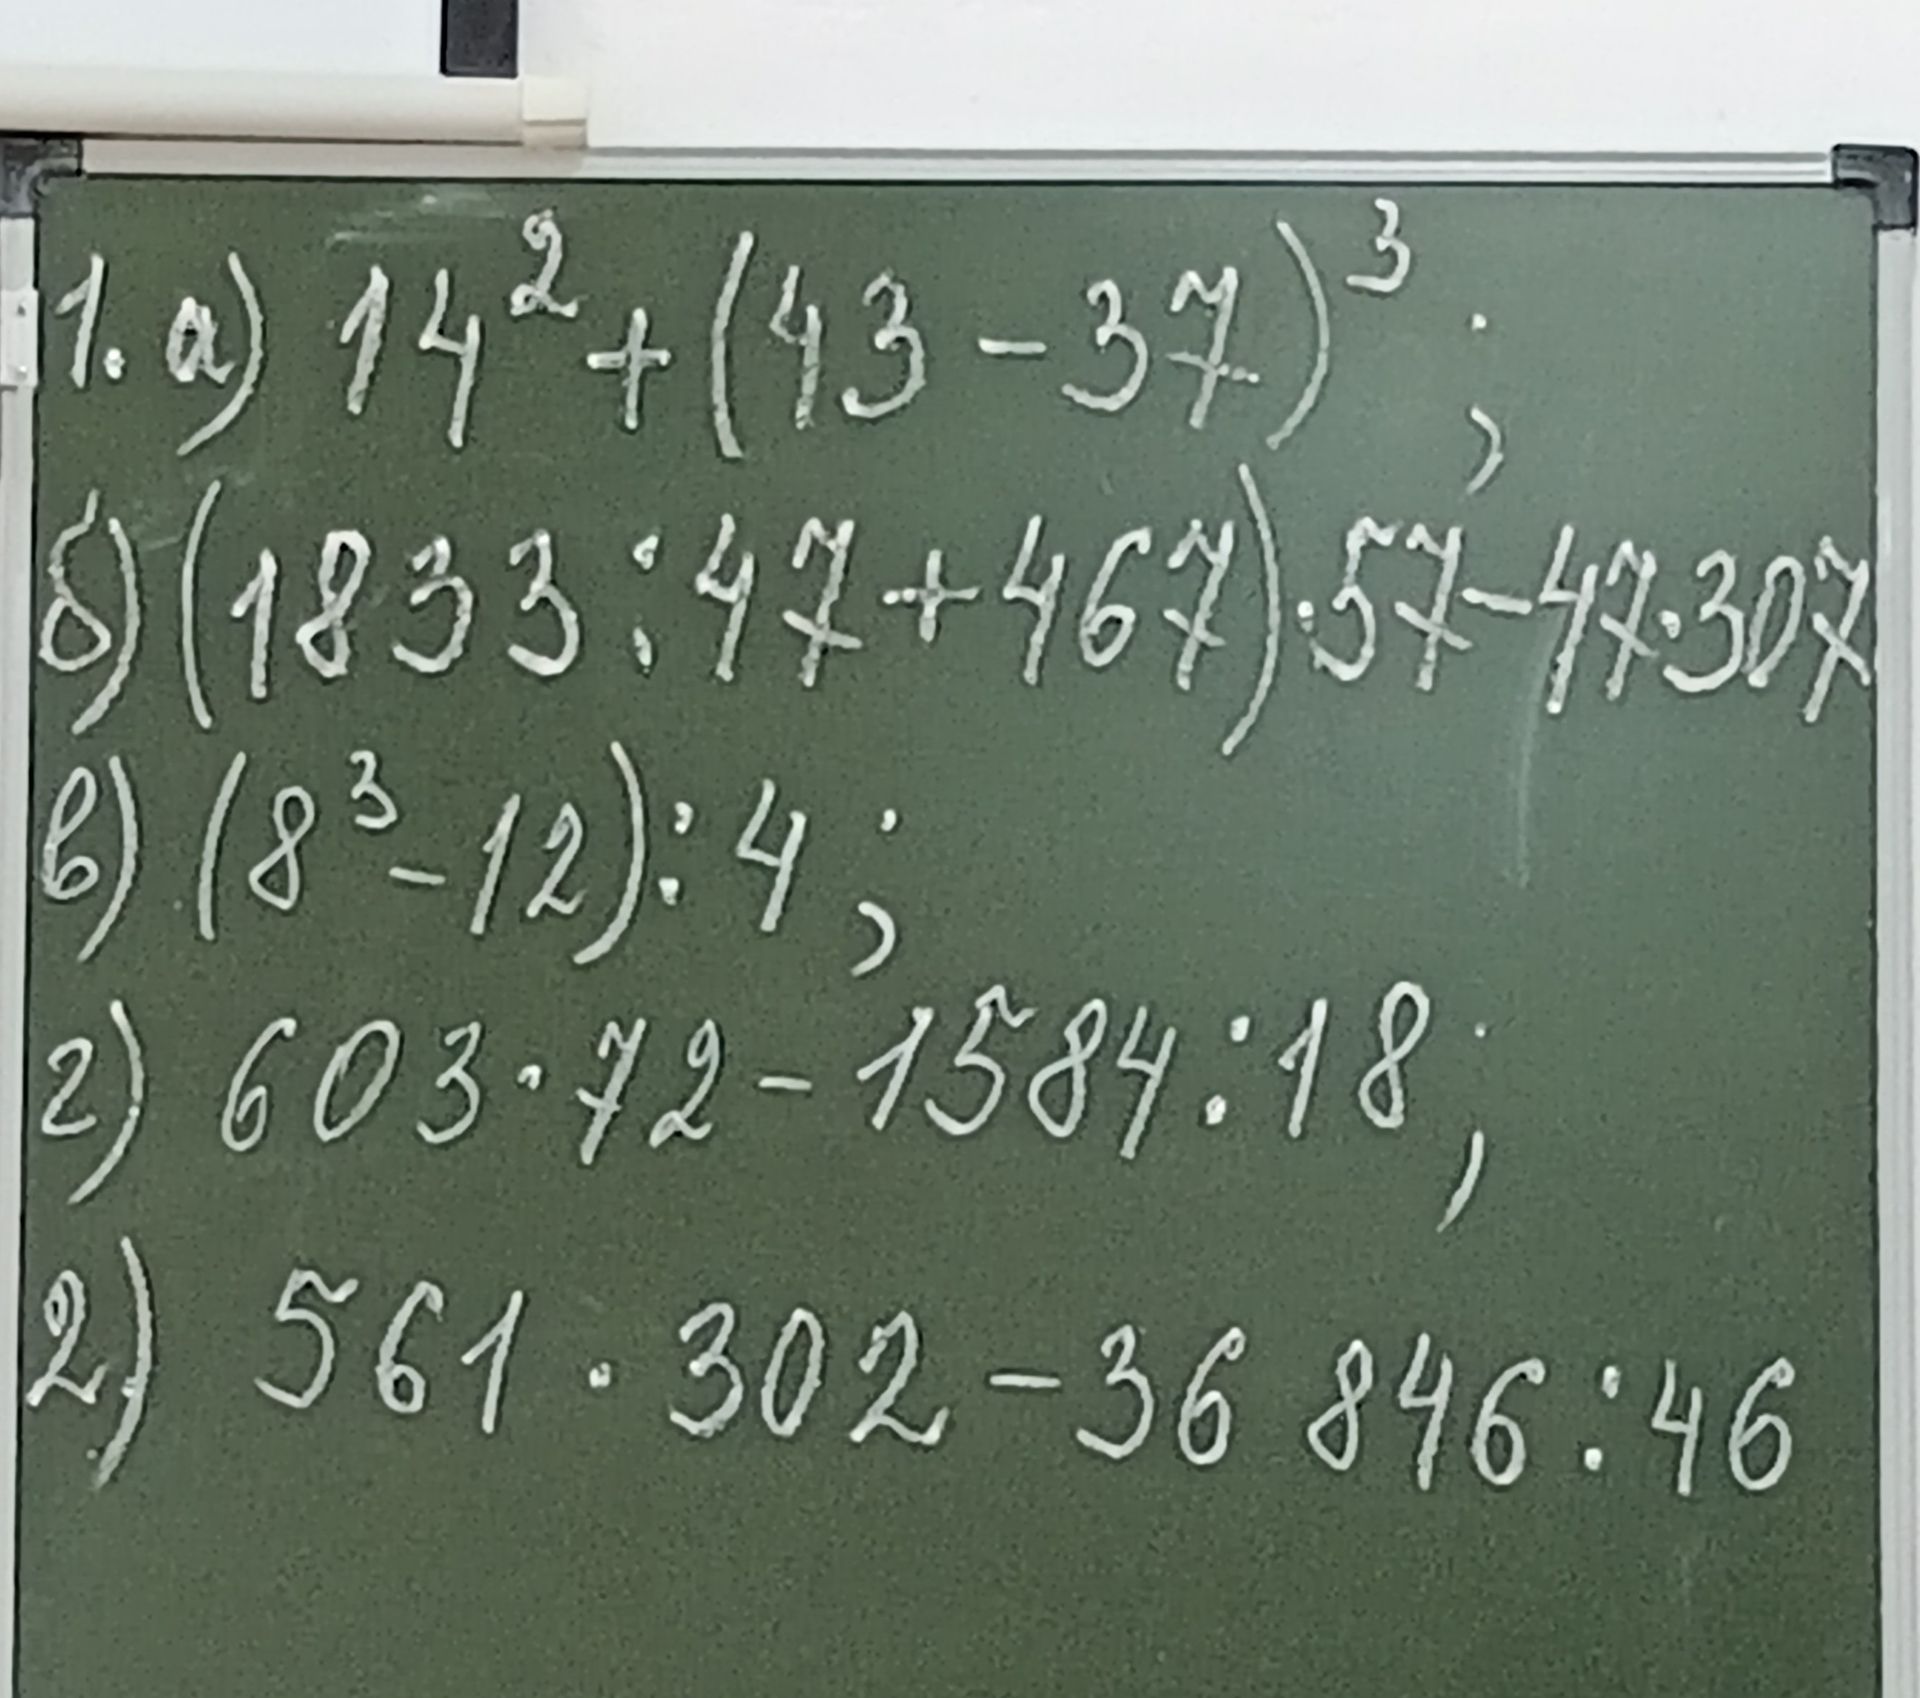 1. а) 14² + (43 - 37)³ ;
б) (1833 : 47 + 467) · 57 - 47 · 307
в) (8³ - 12) : 4 ;
г) 603 · 72 - 1584 : 18 ;
2) 561 · 302 - 36 846 : 46